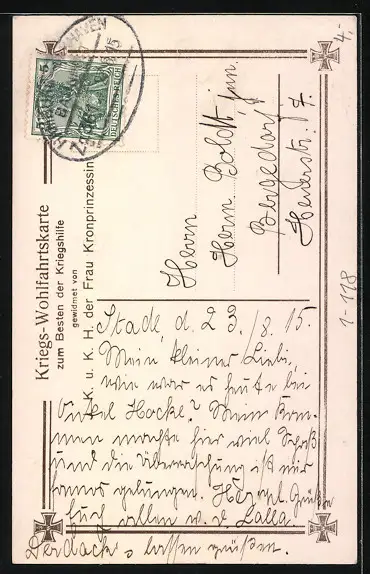 4.-
HAVEN
DEUTSCHES REICH
Kriegs-Wohlfahrtskarte
zum Besten der Kriegshilfe
gewidmet von
K. u. K. H. der Frau Kronprinzessin
Herrn
Herm. Boldt jun.
Bergedorf
7.
1-118
Stade, d. 23./8. 15.
Mein kleiner Liebi,
wie war es heute bei
Onkel Hacke? Mein Kom-
men machte hier viel Spaß
und die Überraschung ist mir
famos gelungen. Herzl. Grüße
Euch allen w. d. Lalla.
lassen grüßen.